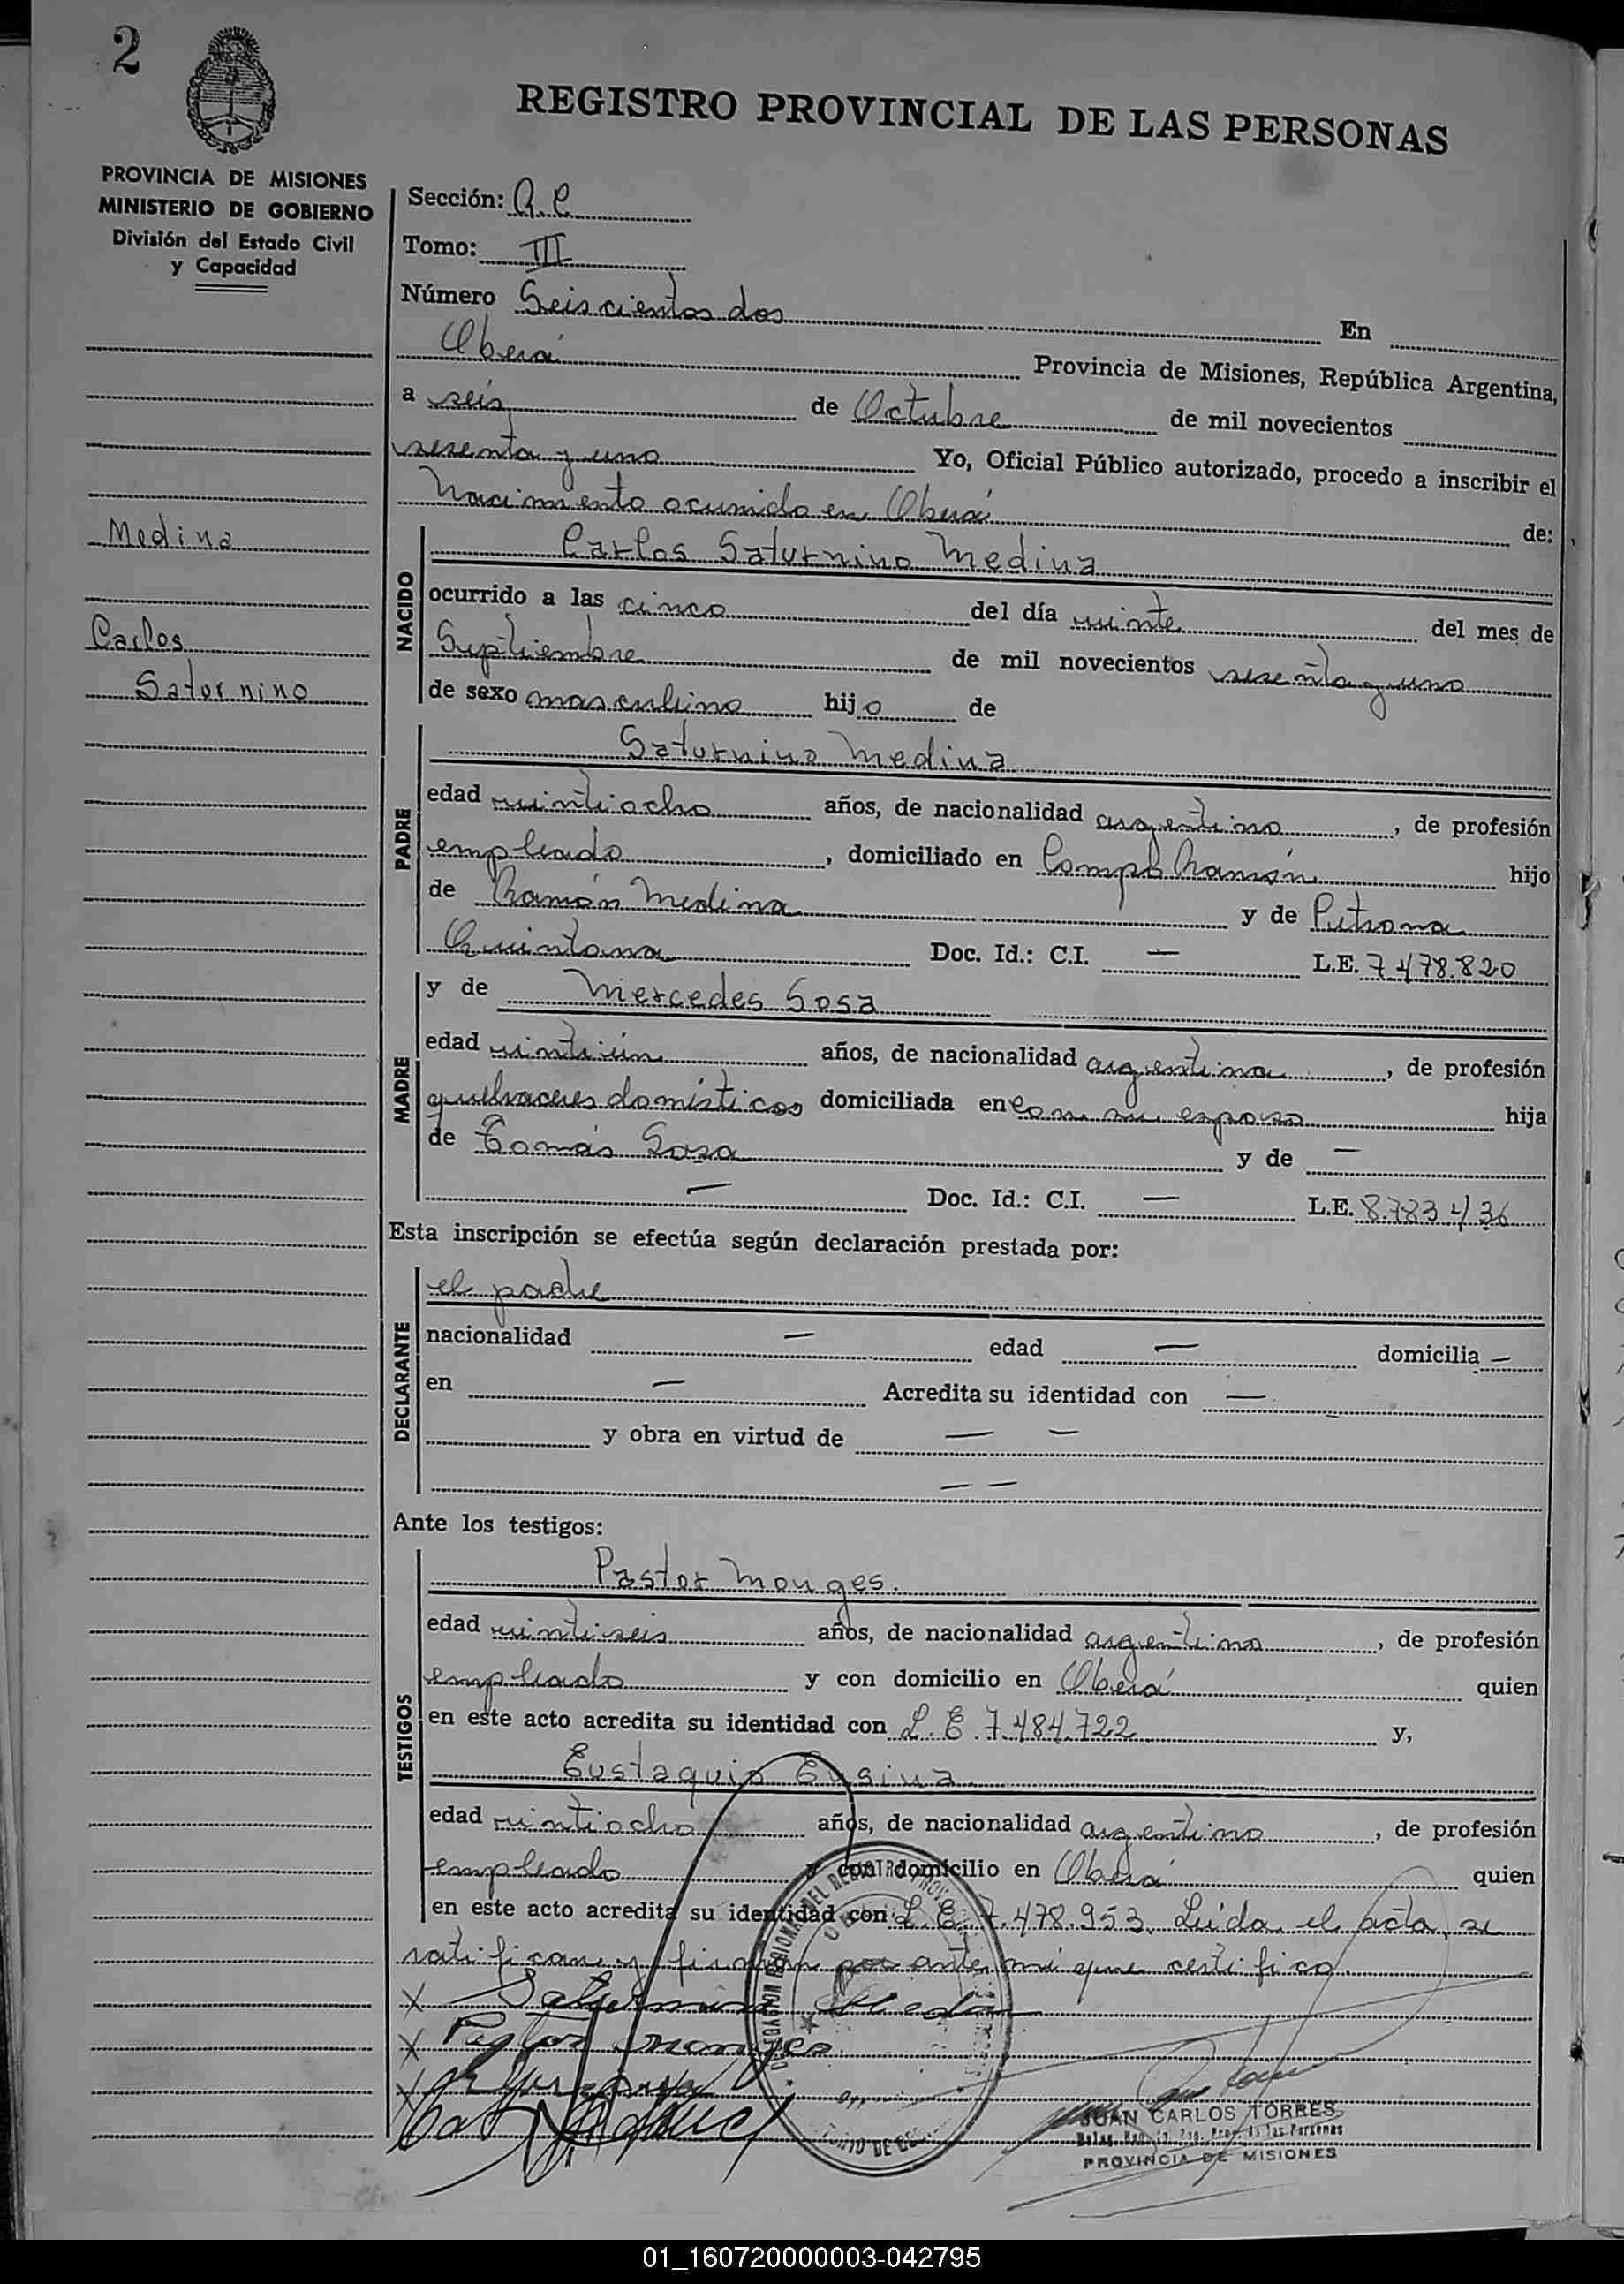 2
REGISTRO PROVINCIAL DE LAS PERSONAS
PROVINCIA DE MISIONES
MINISTERIO DE GOBIERNO
División del Estado Civil
y Capacidad
Medina
Carlos
Saturnino
Sección: A.C
Tomo: III
Número Seiscientos dos En
Oberá Provincia de Misiones, República Argentina,
a seis de Octubre de mil novecientos
sesenta y uno Yo, Oficial Público autorizado, procedo a inscribir el
Nacimiento ocurrido en Oberá de:
NACIDO
Carlos Saturnino Medina
ocurrido a las cinco del día veinte del mes de
Septiembre de mil novecientos sesenta y uno
de sexo masculino hijo de
PADRE
Saturnino Medina
edad veintiocho años, de nacionalidad argentino, de profesión
empleado, domiciliado en Campo Ramón hijo
de Ramón Medina y de Petrona
Quintana Doc. Id.: C.I. — L.E. 7.478.820
MADRE
y de Mercedes Sosa
edad veintiún años, de nacionalidad argentina, de profesión
quehaceres domésticos domiciliada en con su esposo hija
de Tomás Sosa y de —
— Doc. Id.: C.I. — L.E. 8.783.436
Esta inscripción se efectúa según declaración prestada por:
DECLARANTE
el padre
nacionalidad — edad — domicilia —
en — Acredita su identidad con —
y obra en virtud de — —
— —
Ante los testigos:
TESTIGOS
Pastor Monges.
edad veintiseis años, de nacionalidad argentino, de profesión
empleado y con domicilio en Oberá quien
en este acto acredita su identidad con L.E. 7.484.722 y,
Eustaquio
edad veintiocho años, de nacionalidad argentino, de profesión
empleado y con domicilio en Oberá quien
en este acto acredita su identidad con L.E. 7.478.953. Leída el acta, se
ratifican y firman por ante mí que certifico
X Saturnino Medina
X Pastor Monges
X
JUAN CARLOS TORRES
PROVINCIA DE MISIONES
01_160720000003-042795